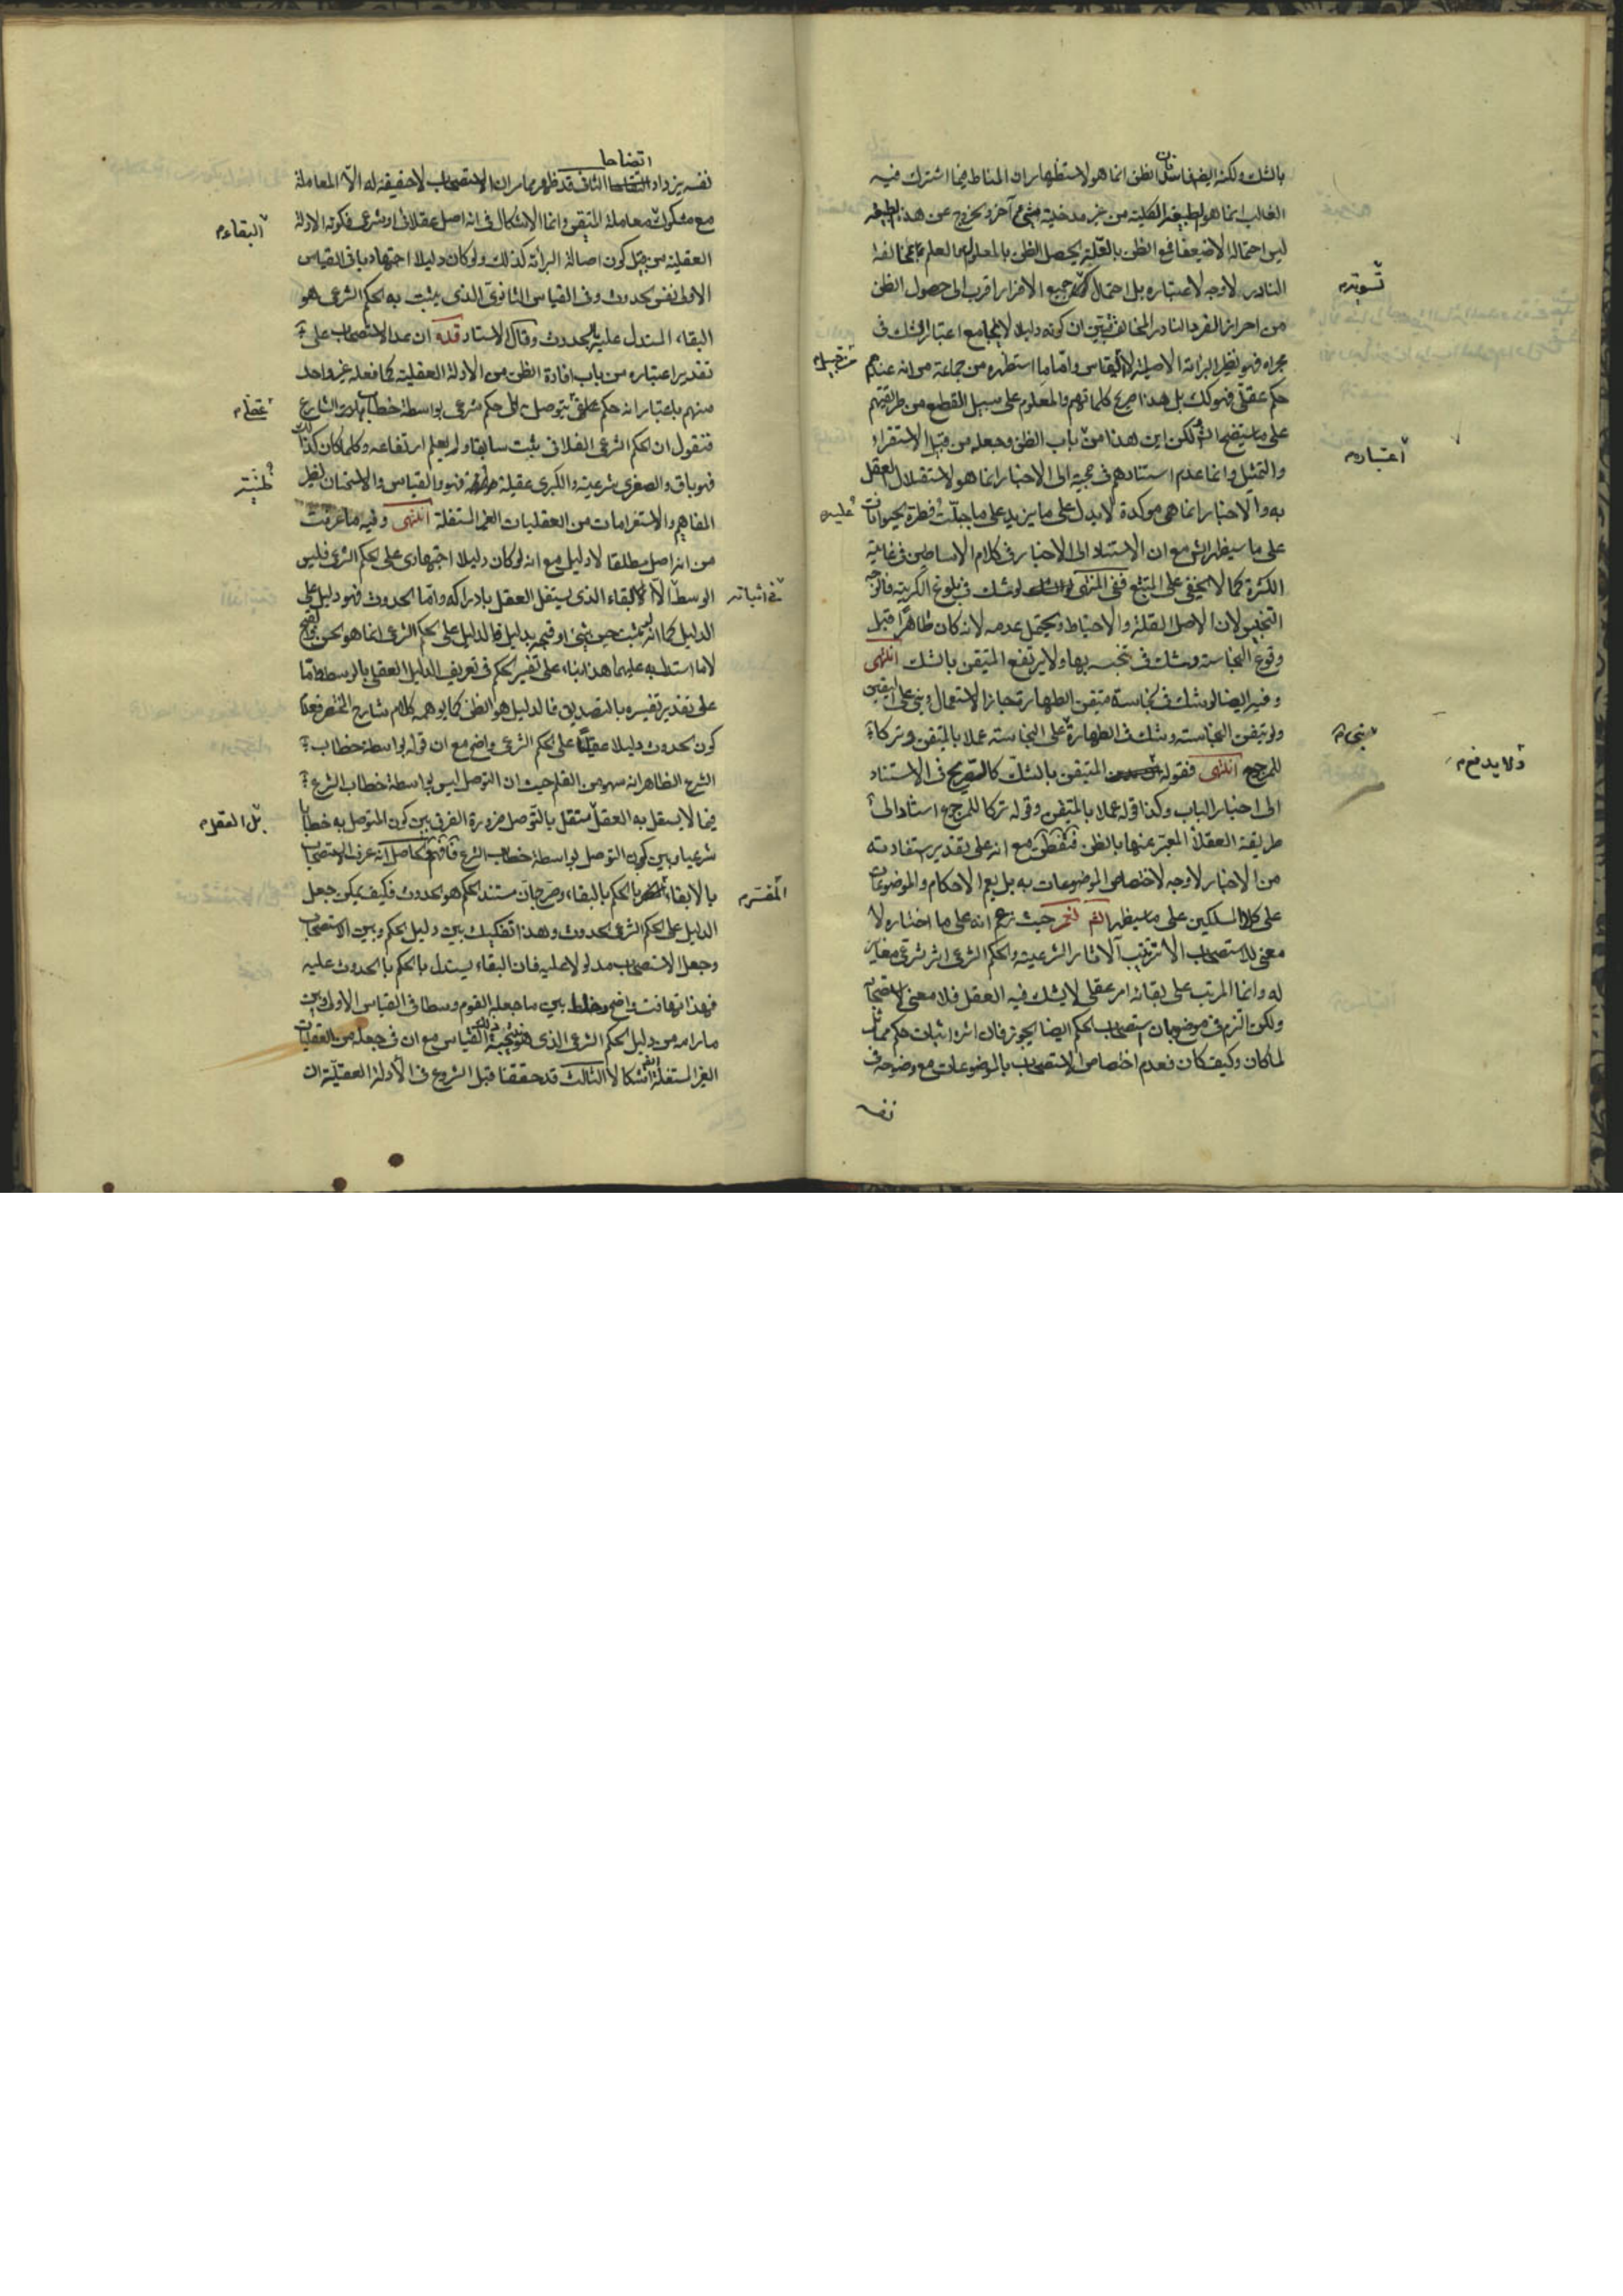 بالشك ولكنه ايضا فاسد فان الظن انما هو لاستظهار ان المناط فيما اشترك فيه
الغالب انما هو الطبيعة الكلية من غير مدخلية شيء آخر وخروج عن هذه الطبيعة
ليس احتماله الا ضعيفا فمع الظن بالعلية يحصل الظن بالمعلول اما العلم بمخالفة
النادر لا وجه لاعتباره بل احتمال جميع الافراد اقرب الى حصول الظن
من احراز الفرد النادر المخالف فتبين ان كونه دليلا لا يجامع اعتبار الشك في
مجراه فهو نظير البرائة الاصلية لا القياس واما ما استظهره من جماعة من انه عندهم
حكم عقلي فهو كك بل هذا صريح كلماتهم والمعلوم على سبيل القطع من طريقتهم
على ما سيتضح لكن اين هذا من باب الظن وجعله من قبيل الاستقراء
والتمثيل وانما عدم استنادهم في حجيته الى الاخبار انما هو لاستقلال العقل
به والاخبار انما هي موكدة لا يدل على ما يزيد على ما جبلت فطرة الحيوانات
على ما سيظهر مع ان الاستناد الى الاخبار في كلام الاساطين في غاية
الكثرة كما لا يخفى على المتتبع ففي المنتهى لو شك في بلوغ الكرية فالوجه
التنجيس لان الاصل القلة والاحتياط ويحتمل عدمه لانه كان طاهرا قبل
وقوع النجاسة وشك في تنجسه بها ولا يرتفع المتيقن بالشك انتهى
وفيه ايضا لو شك في نجاسة متيقن الطهارة جاز الاستعمال وبنى على اليقين
ولو تيقن النجاسة وشك في الطهارة على النجاسة عملا بالمتيقن وتركا
للمرجوح انتهى فقوله المتيقن بالشك كالصريح في الاستناد
الى اخبار الباب وكذا قوله عملا بالمتيقن وقوله تركا للمرجوح استنادا الى
طريقة العقلاء المعبر عنها بالظن فتفطن مع انه على تقدير استفادته
من الاخبار لا وجه لاختصاص الموضوعات به بل يعم الاحكام والموضوعات
على كلا المسلكين على ما سيظهر حيث زعم انه على ما اختاره لا
معنى للاستصحاب الا ترتيب الآثار الشرعية والحكم الشرعي اثر شرعي مغاير
له وانما المرتب على بقائه امر عقلي لا يشك فيه العقل فلا معنى لاستصحابه
ولكن التزم في موضع بان استصحاب الحكم ايضا يجوز فان اثره اثبات حكم مماثل
لما كان وكيف كان فعدم اختصاص الاستصحاب بالموضوعات مع وضوحه في
نفسه
تسويته
من قبيل
اعتباره
عليه
بنى
ولا يدفع
اتضاحا
نفسه يزداد الثاني قد ظهر مما مر ان الاستصحاب لا حقيقة له الا المعاملة
مع مشكوك معاملة المتيقن وانما الاشكال في انه اصل عقلائي او شرعي فكونه الادلة
العقلية من قبيل كون اصالة البرائة كذلك ولو كان دليلا اجتهاديا في القياس
الاول نفس الحدوث وفي القياس الثانوي الذي يثبت به الحكم الشرعي هو
البقاء المستدل عليه بالحدوث وقال الاستاد قده ان عد الاستصحاب على
تقدير اعتباره من باب افادة الظن من الادلة العقلية كما فعله غير واحد
منهم باعتبار انه حكم عقلي يتوصل به الى حكم شرعي بواسطة خطاب الشارع
فنقول ان الحكم الشرعي الفلاني ثبت سابقا ولم يعلم ارتفاعه وكلما كان كذلك
فهو باق والصغرى شرعية والكبرى عقلية فهو والقياس والاستحسان نظير
المفاهيم والاستلزامات من العقليات الغير المستقلة انتهى وفيه ما عرفت
من انه اصل مطلقا لا دليل مع انه لو كان دليلا اجتهاديا على الحكم الشرعي فليس
الوسط الا البقاء الذي يستقل العقل بادراكه واما الحدوث فهو دليل على
الدليل كما انه لو ثبت حسن شيء او قبحه بدليل فالدليل على الحكم الشرعي انما هو الحسن والقبح
لا ما استدل به عليهما هذا بناء على تفسير الحكم في تعريف الدليل العقلي بالوسط واما
على تقدير تفسيره بالتصديق فالدليل هو الظن كما يوهمه كلام شارح المختصر فعدم
كون الحدوث دليلا عقليا على الحكم الشرعي واضح مع ان قوله بواسطة خطاب
الشرع الظاهر انه سهو من القلم حيث ان التوصل ليس بواسطة خطاب الشرع
فيما لا يستقل به العقل مستقل بالتوصل ضرورة الفرق بين كون المتوصل به خطابا
شرعيا وبين كون التوصل بواسطة خطاب الشرع فافهم والحاصل انه عرف الاستصحاب
بالابقاء بالحكم بالبقاء وصرح بان مستند الحكم هو الحدوث فكيف يمكن جعل
الدليل على الحكم الشرعي الحدوث وهذا تفكيك بين دليل الحكم وبين الاستصحاب
وجعل الاستصحاب مدلولا عليه فان البقاء يستدل بالحكم بالحدوث عليه
فهذا تهافت واضح وخلط بين ما جعله القوم وسطا في القياس الاول وبين
ما رامه من دليل الحكم الشرعي الذي هو نتيجة ذلك القياس مع ان في جعله من العقليات
الغير المستقلة اشكالا الثالث قد حققنا قبل الشروع في الادلة العقلية ان
البقاء
عقلي
ظنية
في اثباته
بل العقل
المفسر